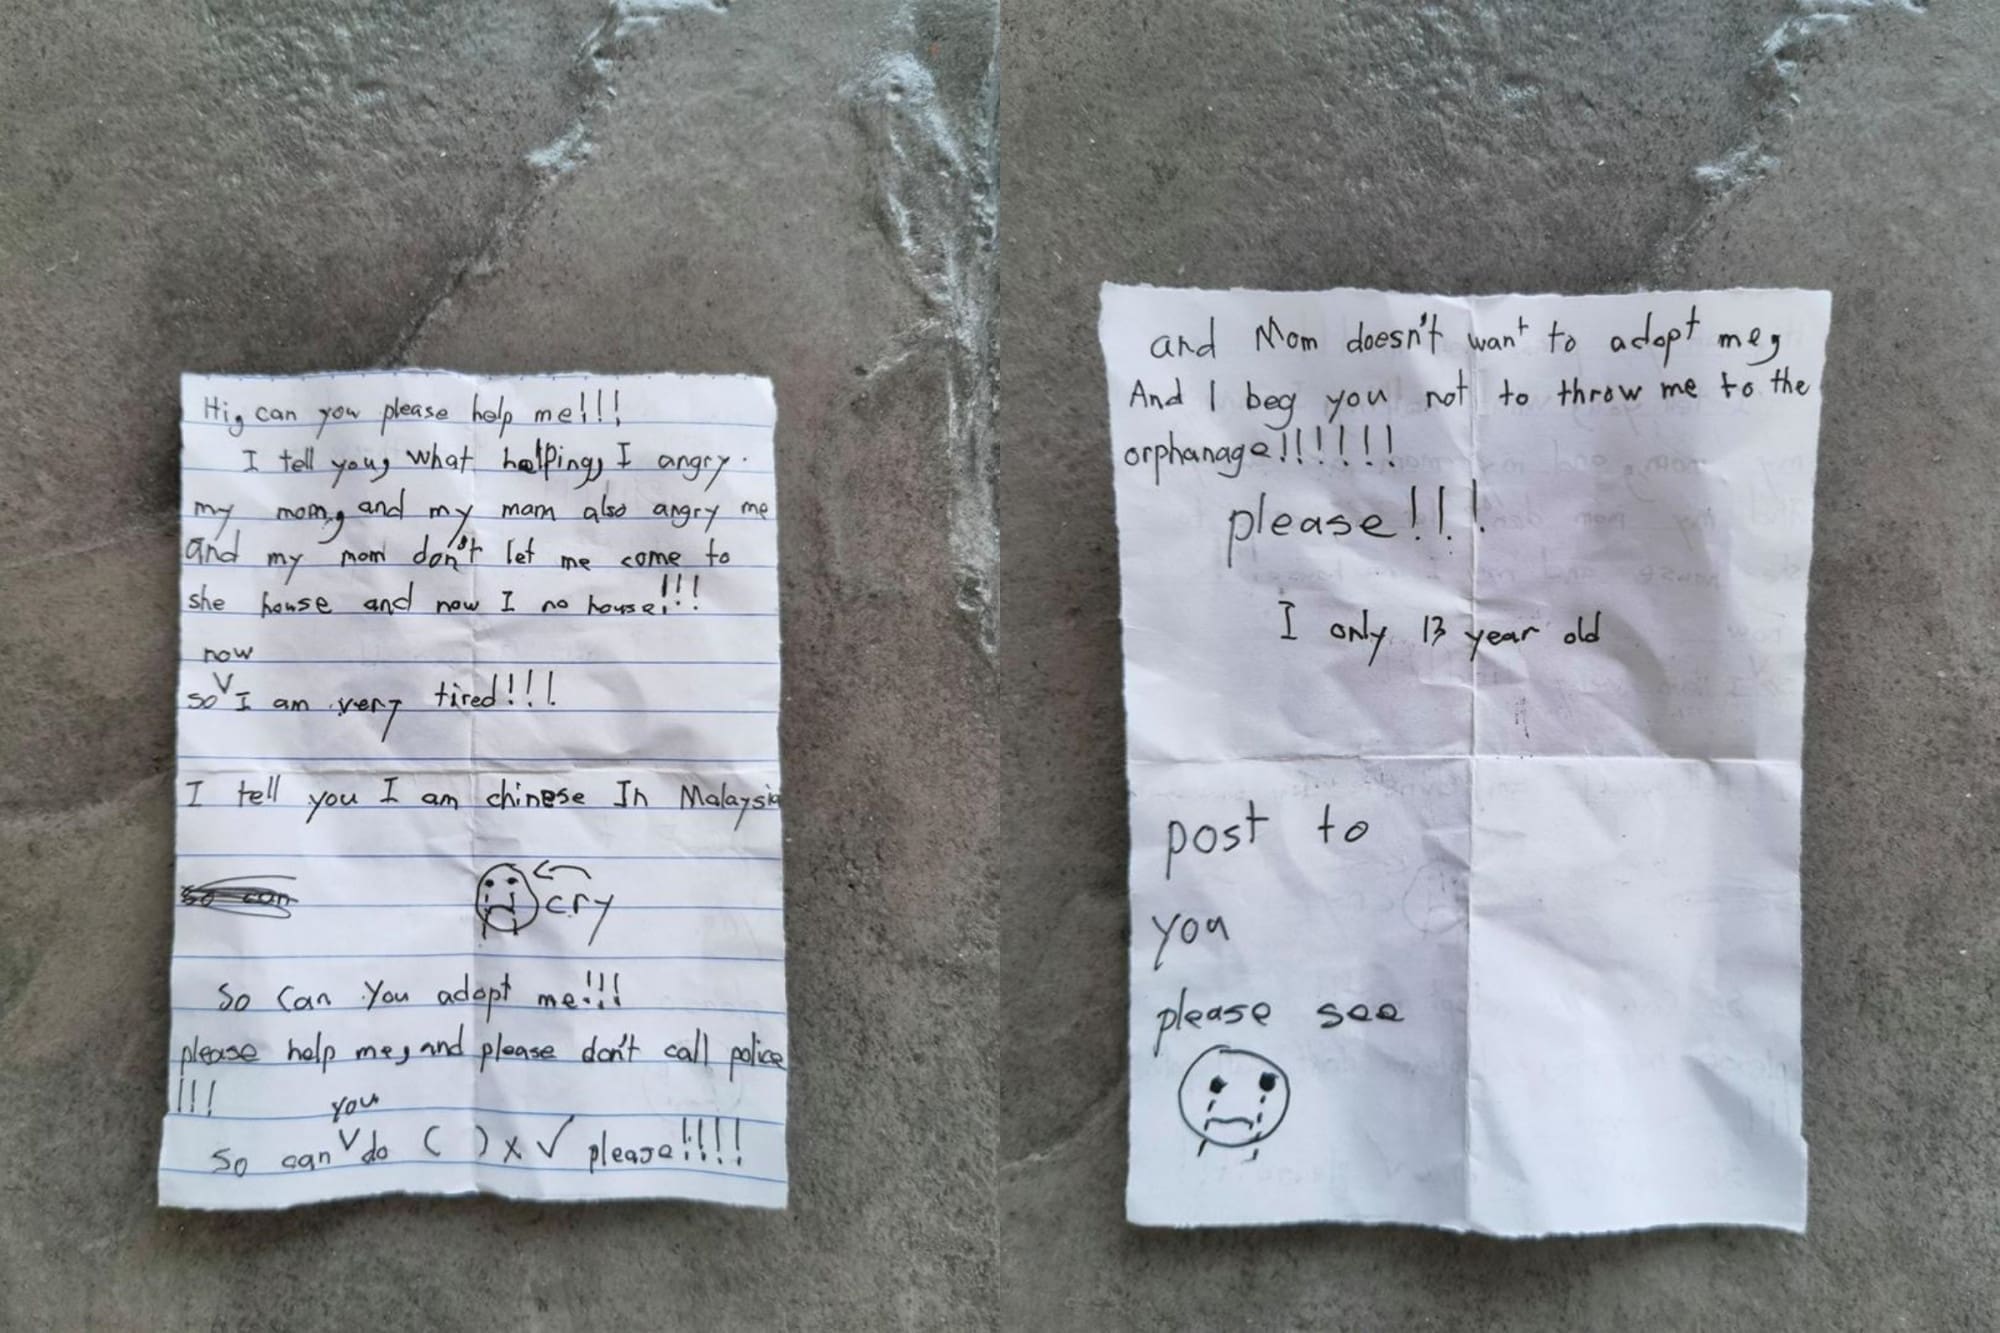 Hi, can you please help me!!!
I tell you, what helping, I angry.
my mom, and my mam also angry me
and my mom don't let me come to
she house and now I no house!!!
now
so V I am very tired!!!
I tell you I am chinese In Malaysia
so can
cry
So Can You adopt me!!!
please help me, and please don't call police
!!!
you
So can V do ( ) x ✓ please!!!!
and Mom doesn't want to adopt me,
And I beg you not to throw me to the
orphanage!!!!!!
please!!!
I only 13 year old
post to
you
please see